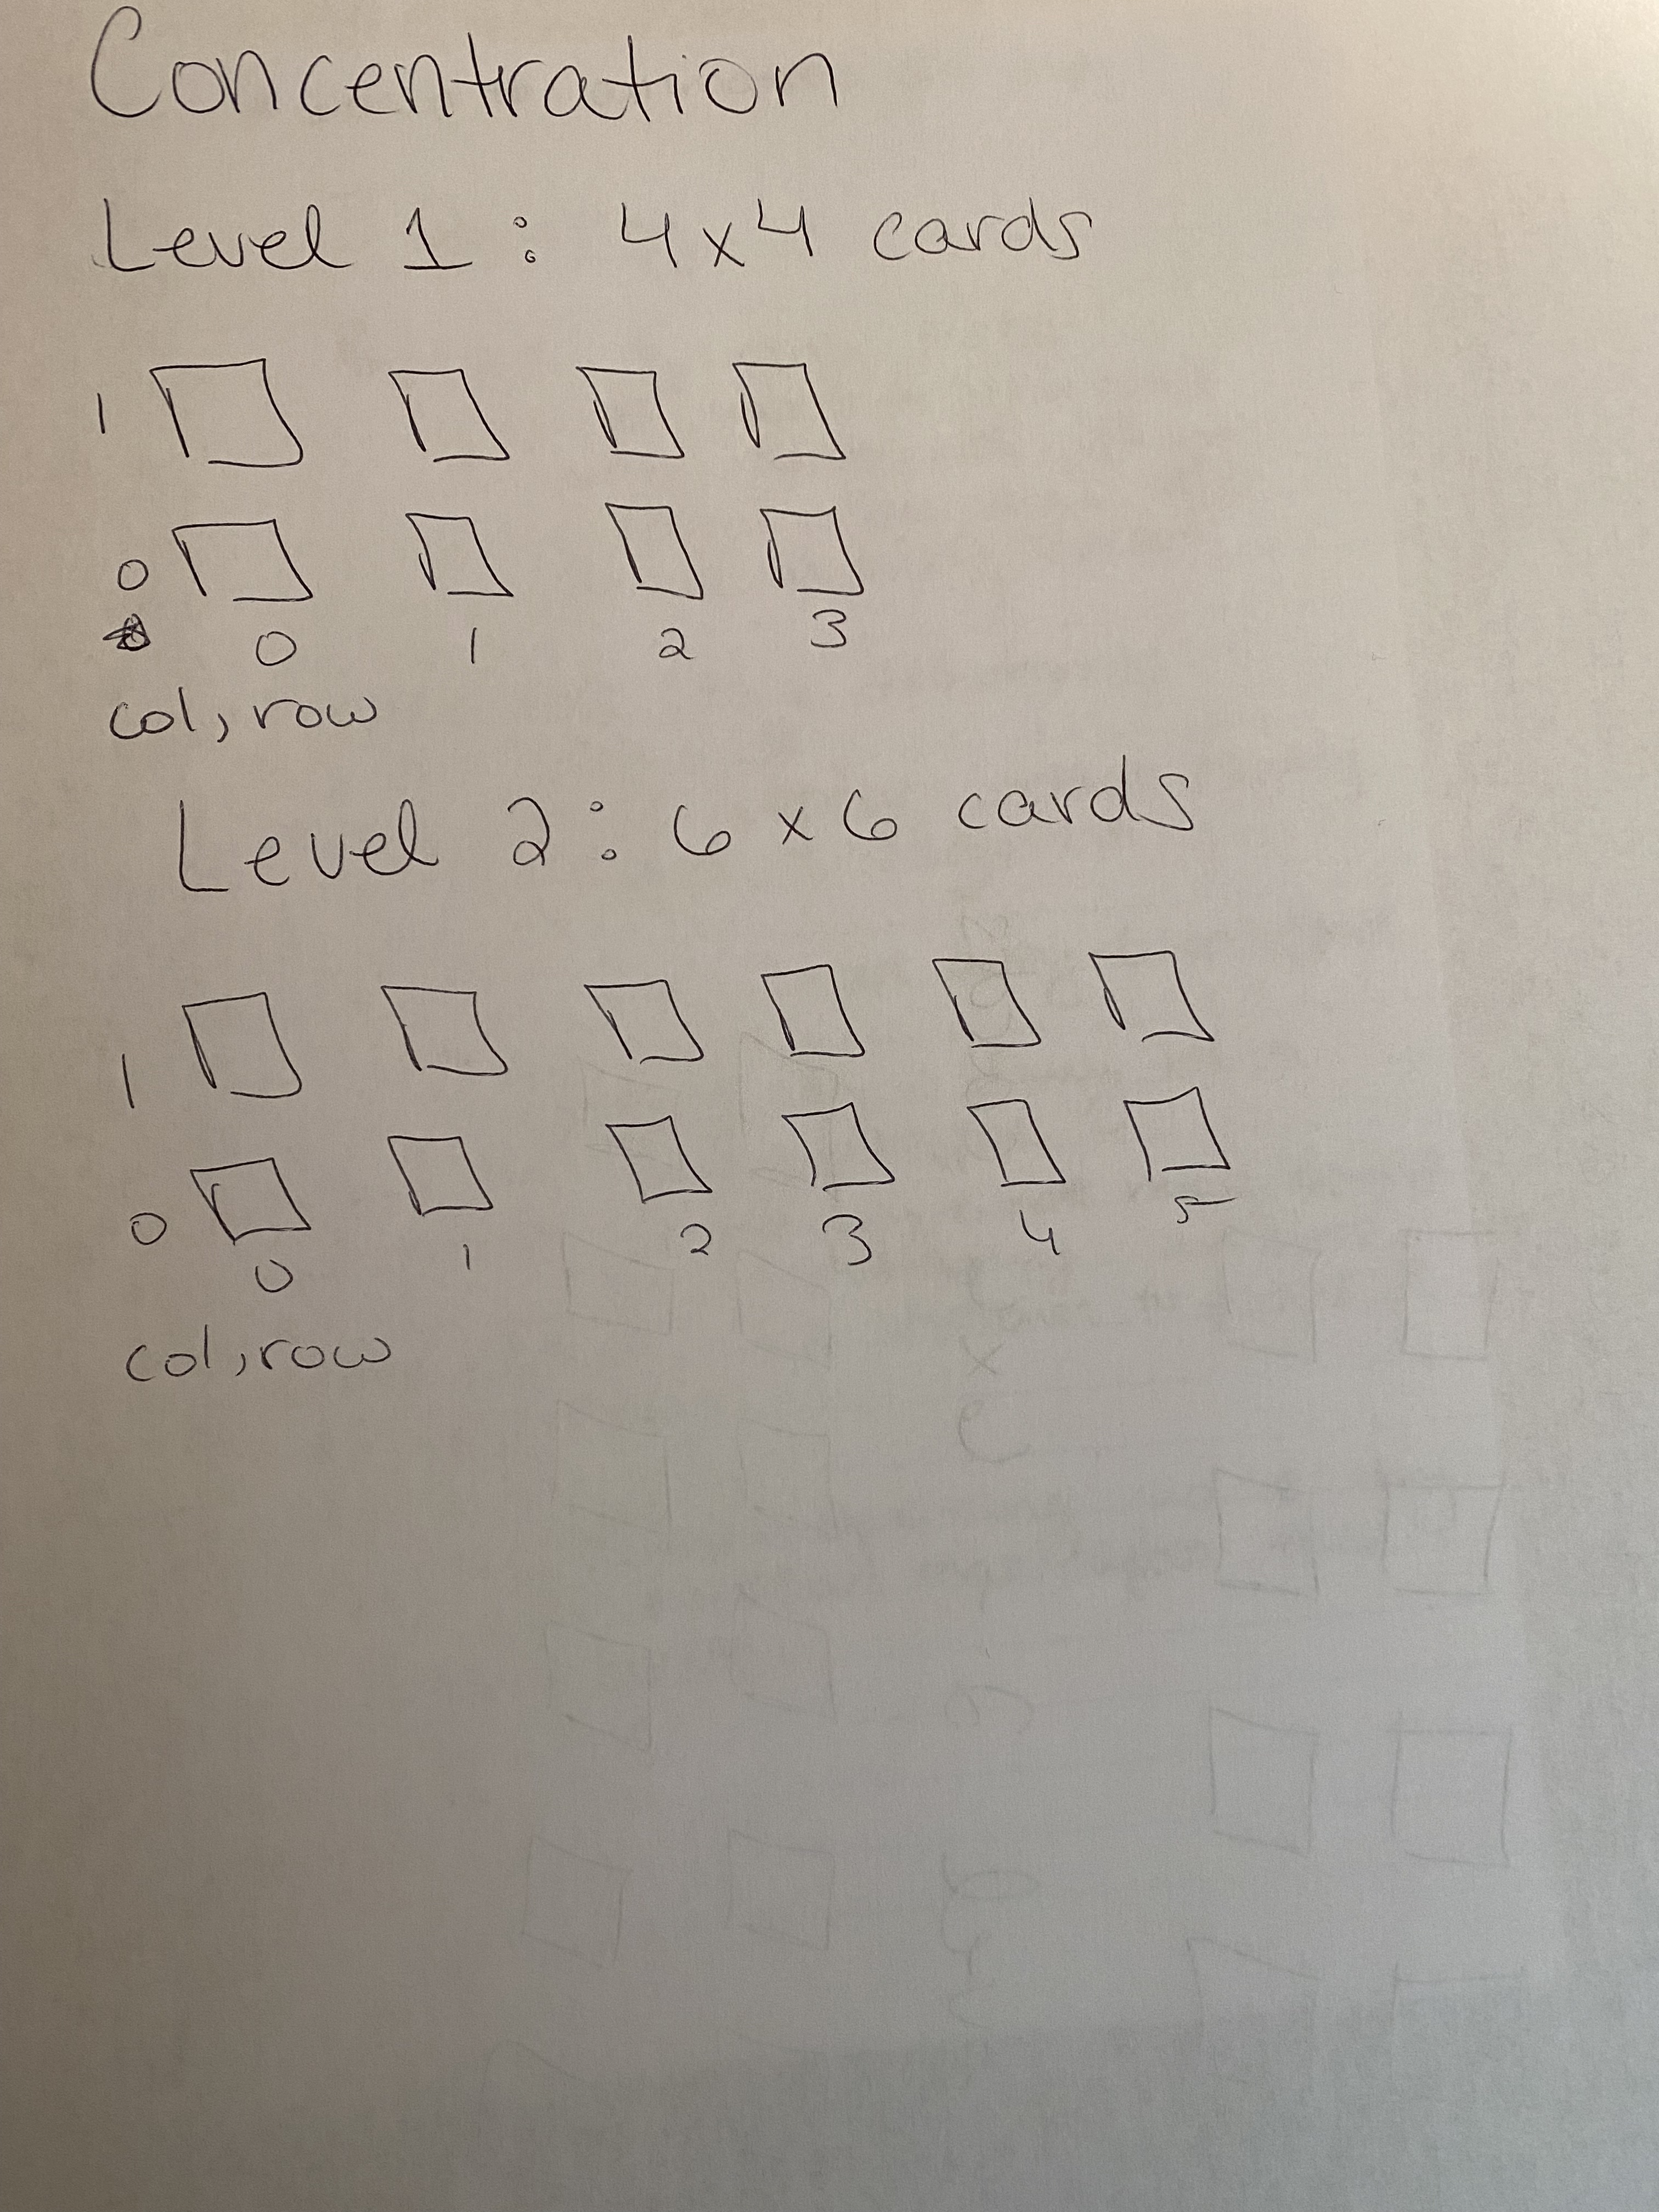 Concentration
Level 1 : 4x4 cards
1
0
0 1 2 3
col, row
Level 2 : 6 x 6 cards
1
0
0 1 2 3 4 5
col, row